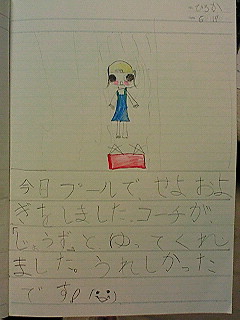 今日プールで、せよおよ
ぎをしました。コーチが
「じょうず」と、ゆってくれ
ました。うれしかった
です。